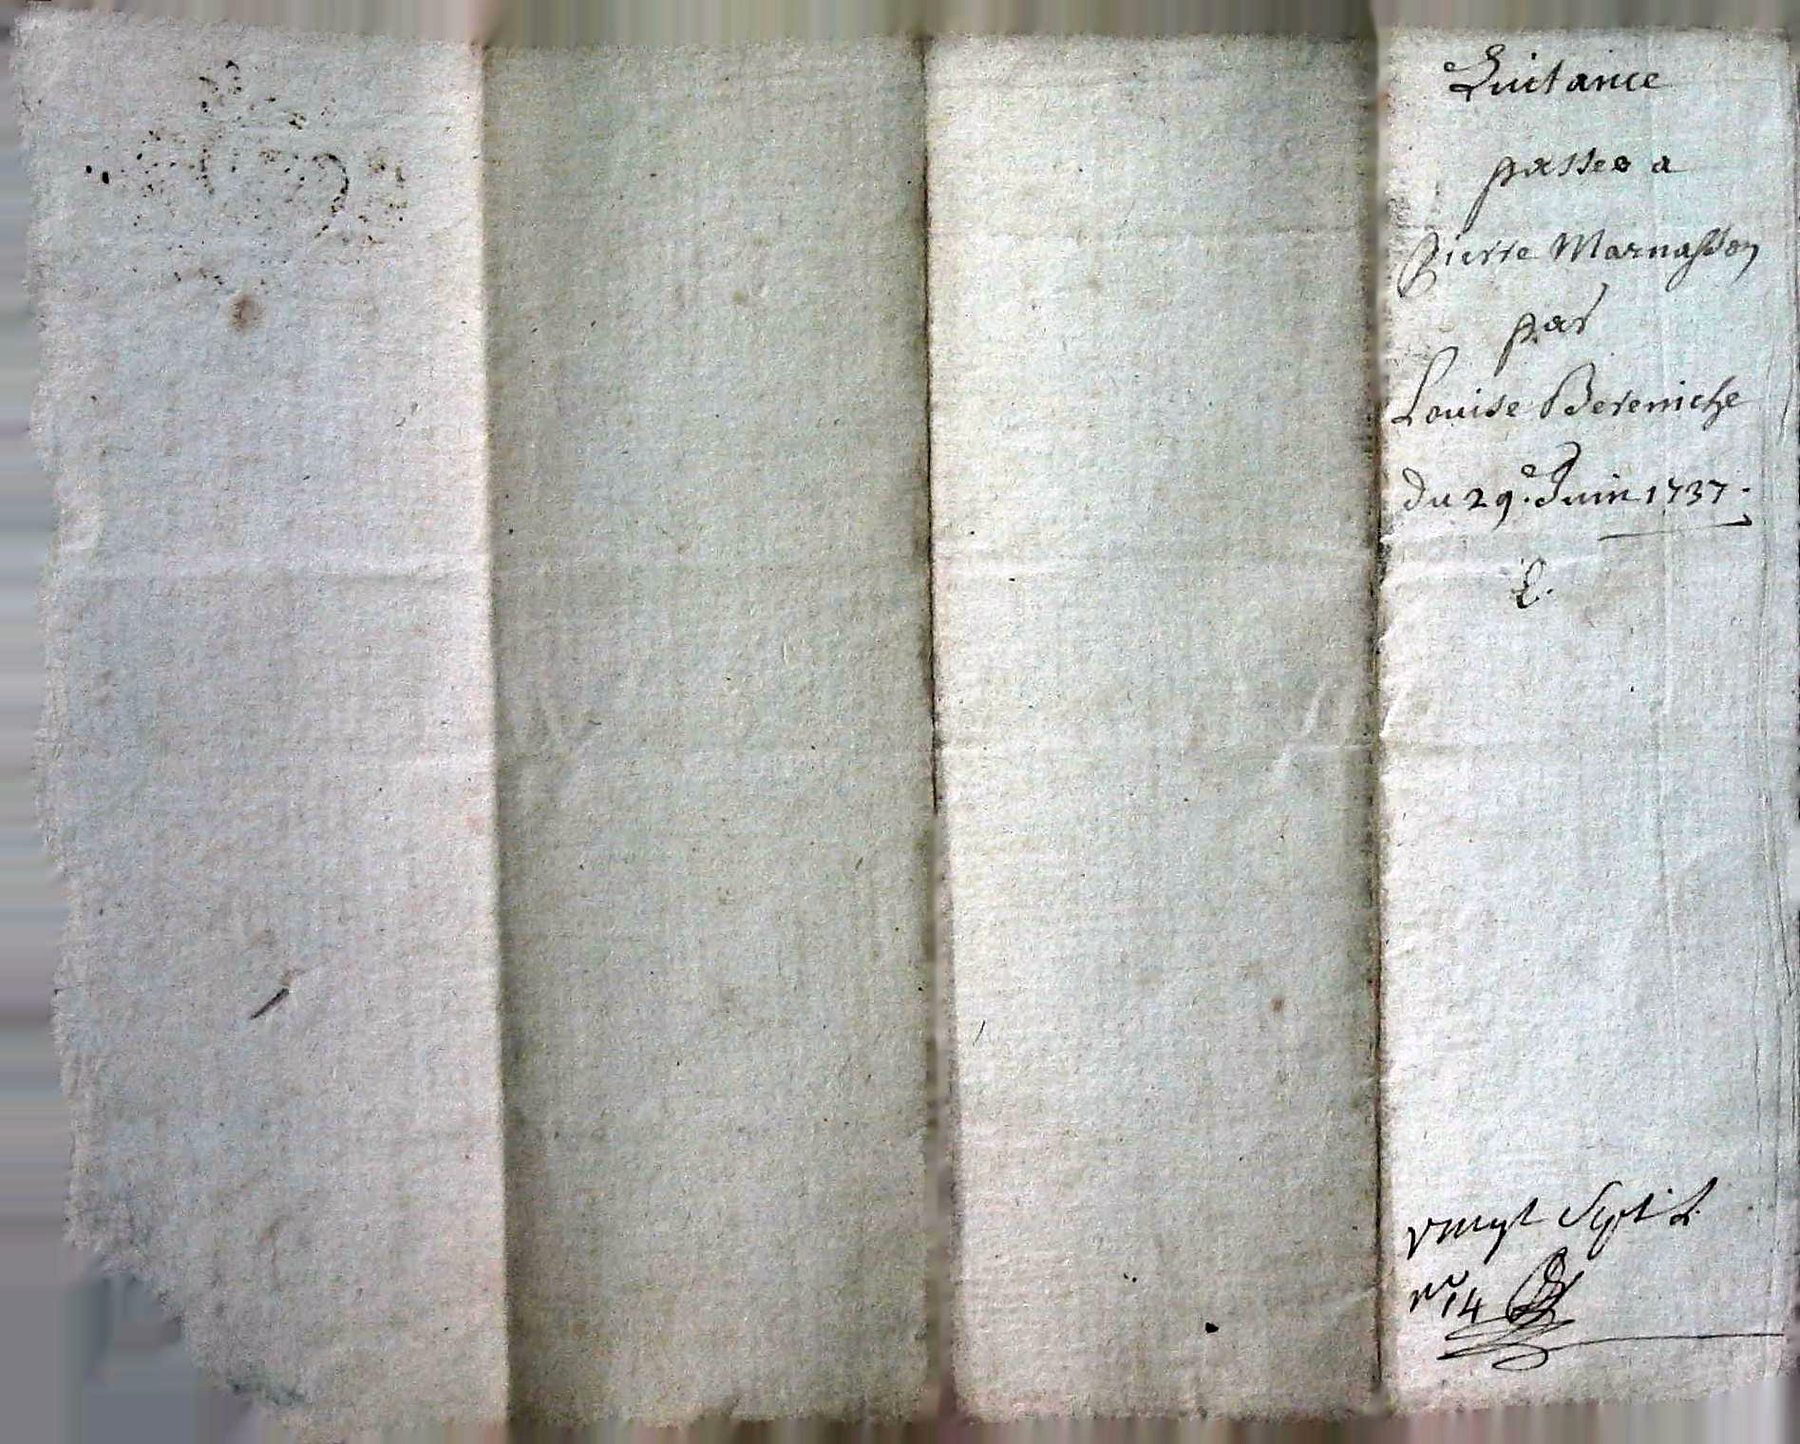 Quitance
passée a
pierre Marnasson
par
Louise Bereniche
du 29.e Juin 1737.
vingt Sept L
n.o 14